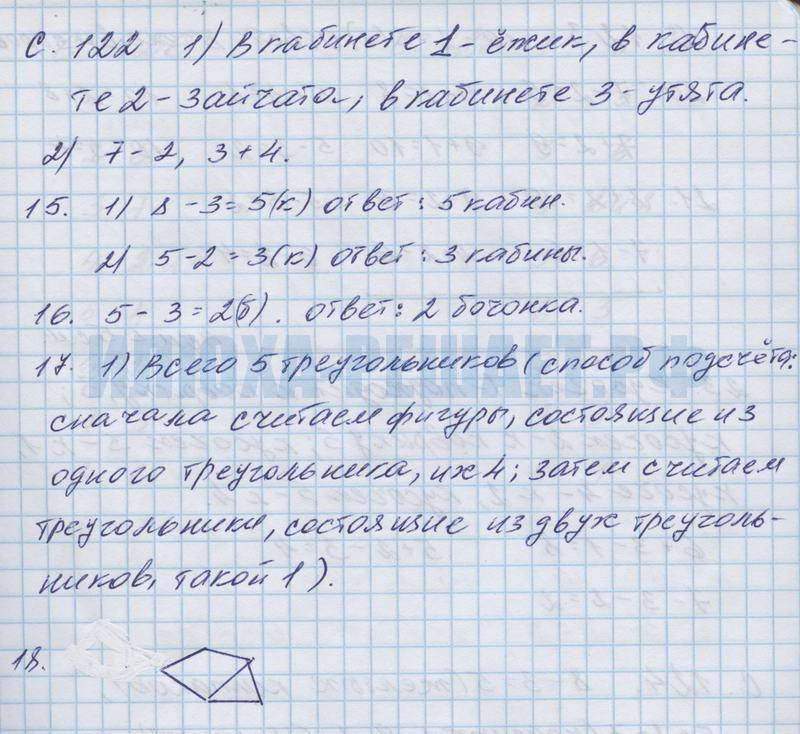 с. 122 1) В кабинете 1 - ёжик, в кабине-
те 2 - зайчата, в кабинете 3 - утята.
2) 7 - 2, 3 + 4.
15. 1) 8 - 3 = 5(к) ответ: 5 кабин.
2) 5 - 2 = 3(к) ответ: 3 кабины.
16. 5 - 3 = 2(б). ответ: 2 бочонка.
17. 1) Всего 5 треугольников (способ подсчёта:
сначала считаем фигуры, состоящие из
одного треугольника, их 4; затем считаем
треугольники, состоящие из двух треуголь-
ников, такой 1).
18.